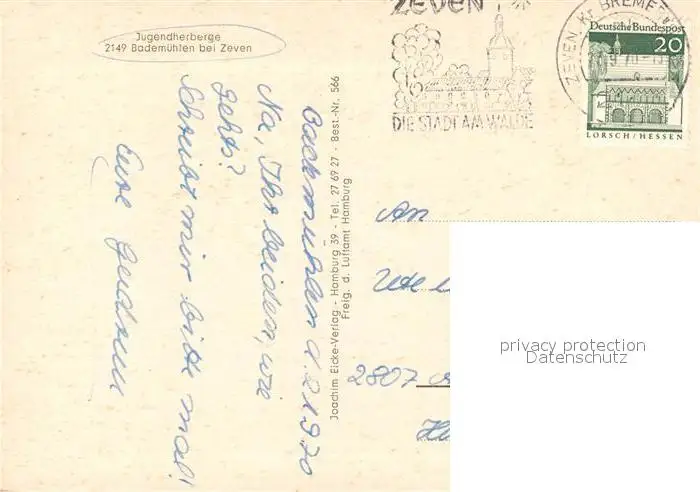 Jugendherberge
2149 Bademühlen bei Zeven
Bademühlen d. 2 1970
Na, Ihr beiden, wie
gehts?
Schreibt mir bitte mal!
Eure
Joachim Eicke-Verlag - Hamburg 39 - Tel. 27 69 27 - Best.-Nr. 566
Freig. d. Luftamt Hamburg
ZEVEN
DIE STADT AM WALDE
ZEVEN, Kr BREMER
Deutsche Bundespost
20
LORSCH/HESSEN
An
2807
privacy protection
Datenschutz